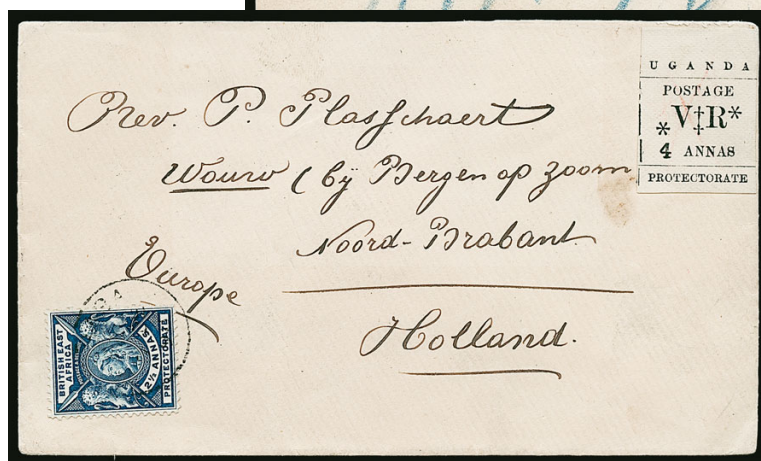 UGANDA
POSTAGE
*V‡R*
4 ANNAS
PROTECTORATE
Rev. P. Plasschaert
Wouw (bij Bergen op Zoom
Noord-Brabant
Europe
Holland.
BRITISH EAST
AFRICA
2½ ANNAS
PROTECTORATE